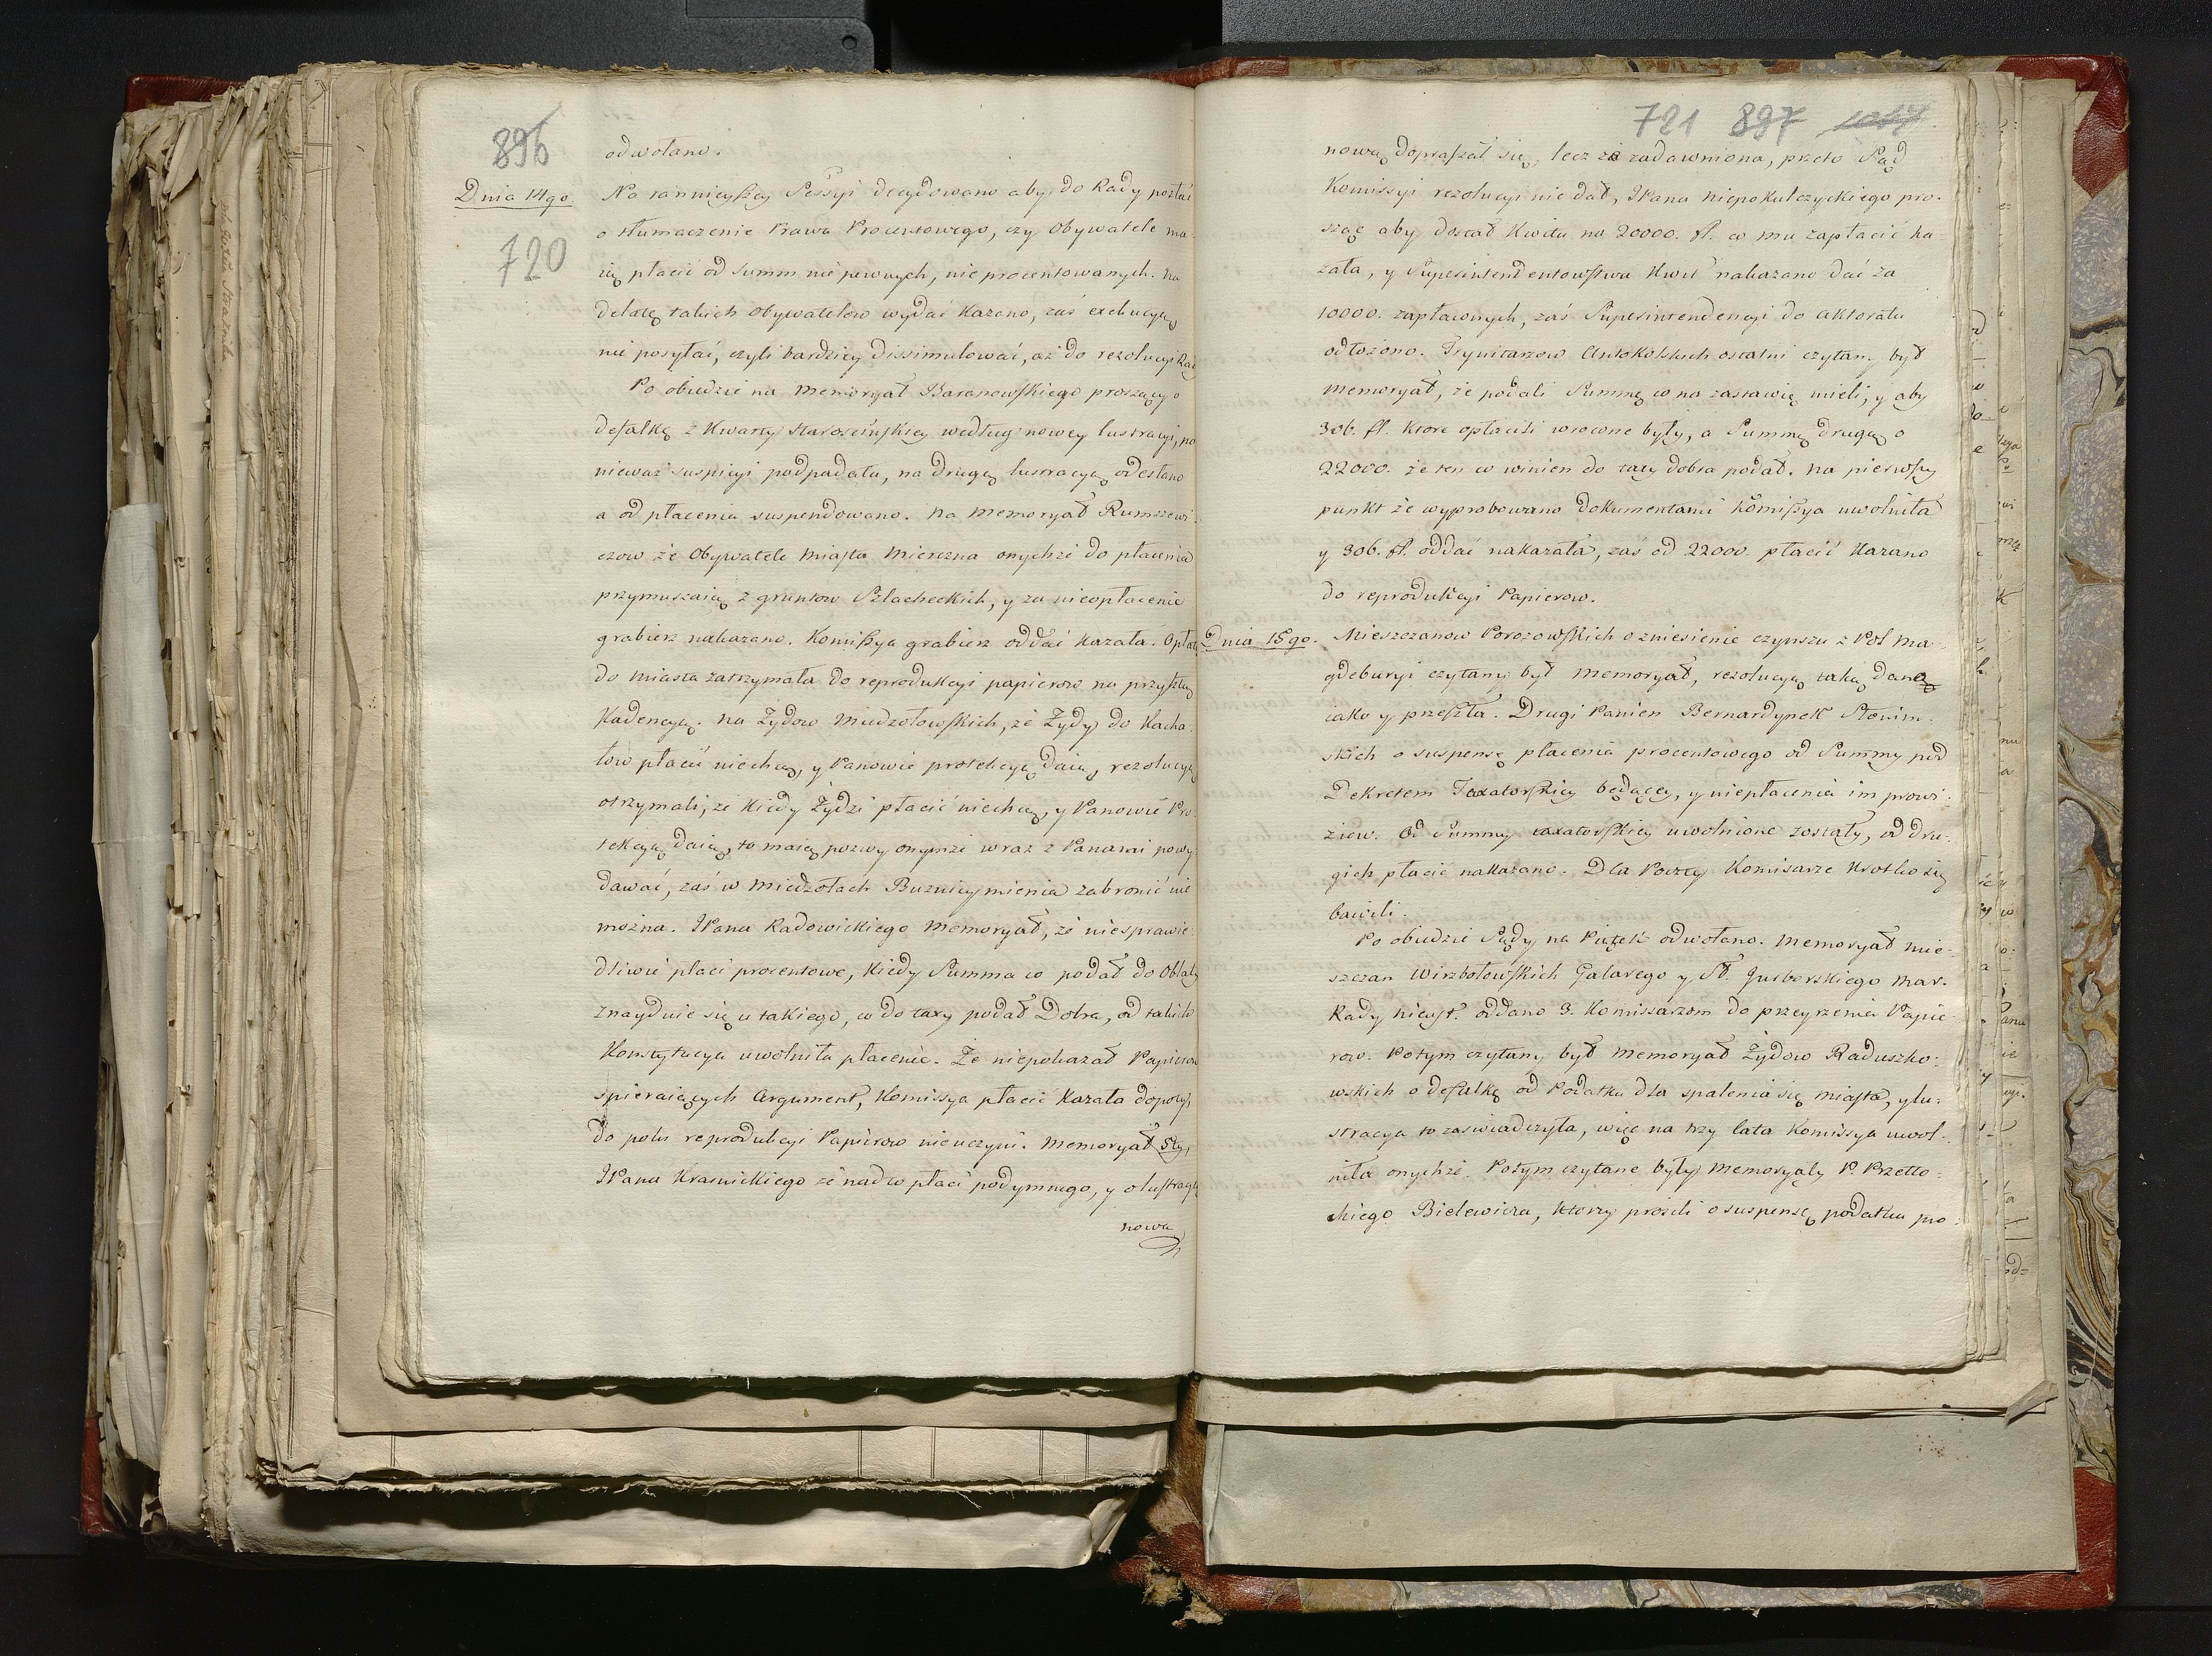 896
odwołano.
Dnia 14go. Na rannieyszey Sessyi decydowano aby do Rady posłać
720
o tłumaczenie Prawa Procentowego, czy Obywatele ma-
ią płacić od Summ nie pewnych, nie procentowanych. na
delatę takich Obywatelow wydać kazano, zaś exekucyą
nie posyłać, czyli bardziey dissimulować, aż do rezolucyi Rady
Po obiedzie na memoryał Baranowskiego proszącego
defalkę z Kwarty Starościńskiey według nowey lustracyi, po
nieważ suspicyi podpadała, na drugą lustracyą odesłano
a od płacenia suspendowano. na memoryał Rumszewi-
czow że Obywatele miasta Mierczna onychże do płacenia
przymuszaią z gruntow Szlacheckich, y za nieopłacenie
grabierz nakazano. Komissya grabierz oddać kazała. Opłatę
do miasta zatrzymała do reprodukcyi papierow na przyszłą
Kadencyą. na Żydow Miedzołowskich, że Żydy do Kacha-
łow płacić niechcą, y Panowie protekcyą daią, rezolucyą
otrzymali, że kiedy Żydzi płacić niechcą, y Panowie Pro-
tekcyą daią, to maią pozwy onymże wraz z Panami powy-
dawać, zaś w Miedzołach Buznicy mienia zabronić nie
można. JPana Radowickiego memoryał, że niesprawie-
dliwie płaci procentowe, kiedy Summa co podał do Oblaty
znayduie się u takiego, co do taxy podał Dobra, od takich
Konstytucya uwolniła płacenie. Że niepokazał Papierow
spieraiących Argument, Komissya płacić kazała dopoty,
do poku reprodukcyi Papierow nieuczyni. Memoryał 5ty,
JPana Krasnickiego że nadto płaci podymnego, y o lustracyą
nowa
721 897
nową dopraszał się, lecz że zadawniona, przeto Sąd
Komissyi rezolucyi nie dał, JPana Niepokulczyckiego pro-
sząc aby dostał Kwitu na 20000. fl. co mu zapłacić ka-
zała, y Superintendentowstwa Kwit nakazano dać za
10000. zapłaconych, zaś Superintendencyi do aktoratu
odłożono. Trynitarzow Antokolskich ostatni czytany był
memoryał, że podali Summę co na zastawię mieli, y aby
306. fl. ktore opłacili wrocone były, a Summę drugą o
22000. że ten co winien do taxy dobra podał. na pierwszy
punkt że wyprobowano dokumentami Komissya uwolniła
y 306. fl. oddać nakazała, zaś od 22000. płacić kazano
do reprodukcyi Papierow.
Dnia 15go. Mieszczanow Porozowskich o zniesienie czynszu z Pol Ma-
gdeburyi czytany był memoryał, rezolucyą taką daną
iako y przeszła. Drugi Panien Bernardynek Słonim-
skich o suspensę płacenia procentowego od Summy pod
Dekretem Taxatorskiey będącey, y niepłacenia im prowi-
ziow. Od Summy taxatorskiey uwolnione zostały, od dru-
gich płacić nakazano. Dla Poczty Komisarze krotko się
bawili.
Po obiedzie Sądy na Piątek odwołano. memoryał mie-
szczan Wirzbołowskich Galarego y Gurborskiego Mar.
Rady Nieust. oddano 3. Komissarzom do przeyrzenia Papie-
row. Potym czytany był memoryał Żydow Raduszko-
wskich o defalkę od Podatku dla spalenia się miasta, y lu-
stracya to zaswiadczyła, więc na trzy lata Komissya uwol-
niła onychże. Potym czytane były memoryały P. Przetto-
ckiego Bielewicza, ktorzy prosili o suspensę podatku pro-